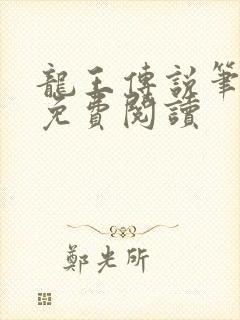 龍王傳說筆
免費閱讀
鄭光所